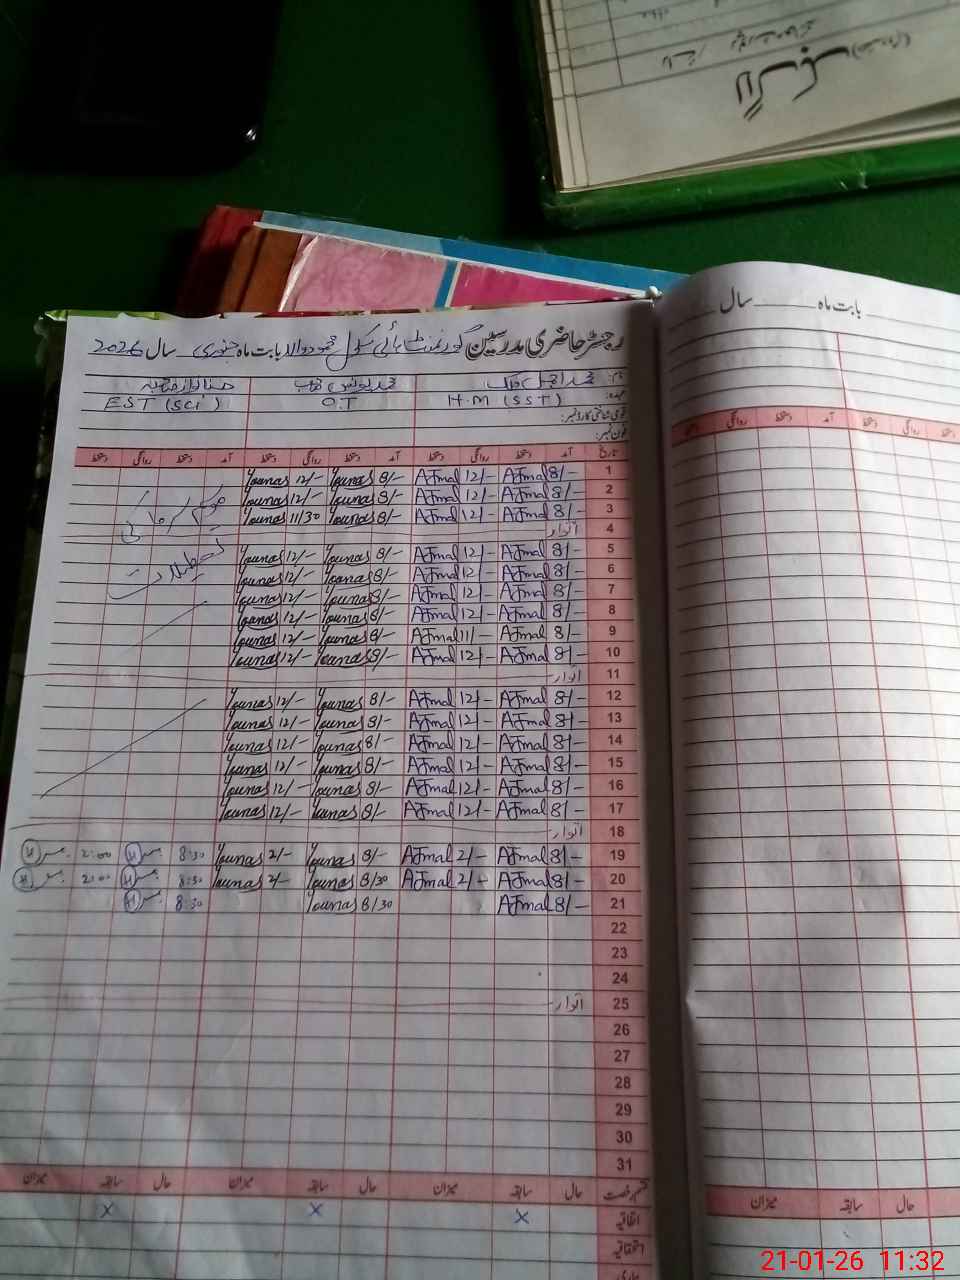 رجسٹر حاضری مدرسین گورنمنٹ ہائی سکول محمود والا بابت ماہ جنوری سال 2026
نام: محمد اجمل ملک محمد یونس
عہدہ: H.M (SST) O.T EST (Sci)
قومی شناختی کارڈ نمبر:
فون نمبر:
تاریخ آمد دستخط روانگی دستخط آمد دستخط روانگی دستخط آمد دستخط روانگی دستخط
1 8/- Ajmal 12/- Ajmal 8/- Younas 12/- Younas
2 8/- Ajmal 12/- Ajmal 8/- Younas 12/- Younas
3 8/- Ajmal 12/- Ajmal 8/- Younas 11/30 Younas
موسم سرما کی
4 اتوار
5 8/- Ajmal 12/- Ajmal 8/- Younas 12/- Younas
تعطیلات
6 8/- Ajmal 12/- Ajmal 8/- Younas 12/- Younas
7 8/- Ajmal 12/- Ajmal 8/- Younas 12/- Younas
8 8/- Ajmal 12/- Ajmal 8/- Younas 12/- Younas
9 8/- Ajmal 11/- Ajmal 8/- Younas 12/- Younas
10 8/- Ajmal 12/- Ajmal 8/- Younas 12/- Younas
11 اتوار
12 8/- Ajmal 12/- Ajmal 8/- Younas 12/- Younas
13 8/- Ajmal 12/- Ajmal 8/- Younas 12/- Younas
14 8/- Ajmal 12/- Ajmal 8/- Younas 12/- Younas
15 8/- Ajmal 12/- Ajmal 8/- Younas 12/- Younas
16 8/- Ajmal 12/- Ajmal 8/- Younas 12/- Younas
17 8/- Ajmal 12/- Ajmal 8/- Younas 12/- Younas
18 اتوار
19 8/- Ajmal 2/- Ajmal 8/- Younas 2/- Younas 8:30 2:00
20 8/- Ajmal 2/- Ajmal 8/30 Younas 2/- Younas 8:30 2:00
21 8/- Ajmal 8/30 Younas 8:30
22
23
24
25 اتوار
26
27
28
29
30
31
قسم رخصت حال سابقہ میزان حال سابقہ میزان حال سابقہ میزان
اتفاقیہ x x x
استحقاقیہ
بابت ماہ سال
دستخط روانگی دستخط آمد دستخط روانگی دستخط
حال سابقہ میزان
21-01-26 11:32